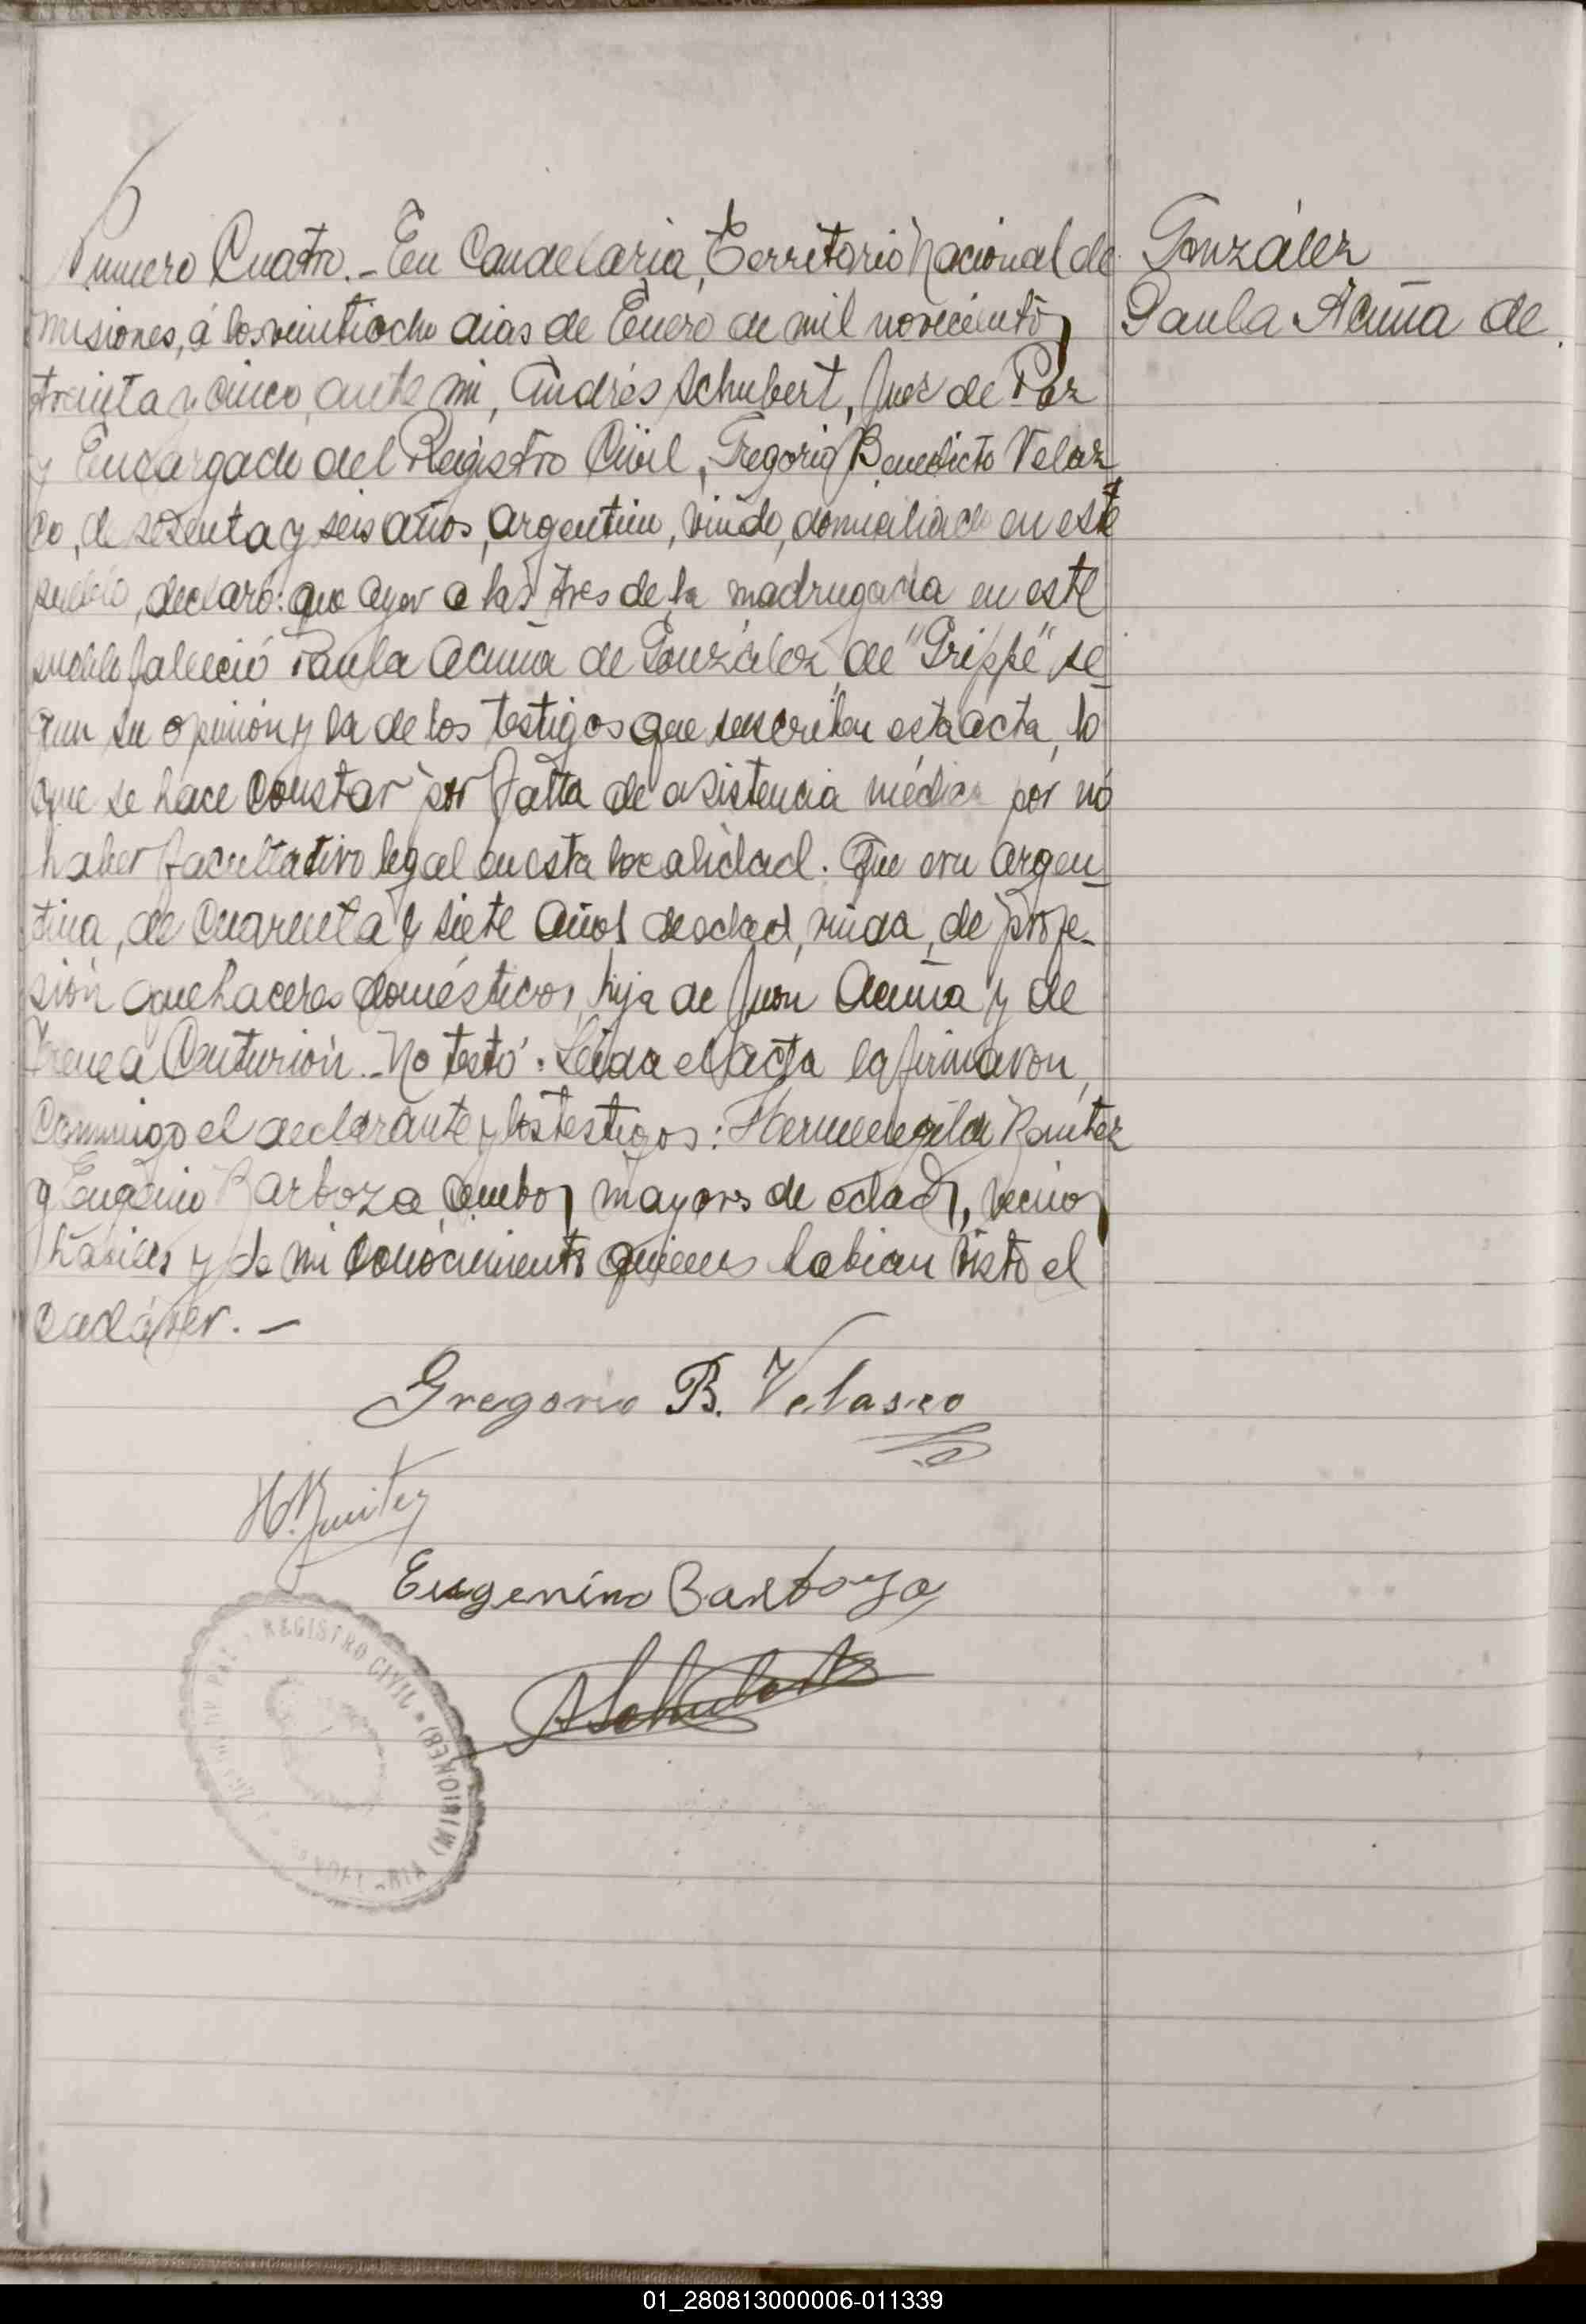 Número Cuatro.- En Candelaria, Territorio Nacional de
González
Misiones, á los veintiocho dias de Enero de mil novecientos
Paula Acuña de
treinta y cinco, ante mi, Andrés Schubert, Juez de Paz
y Encargado del Registro Civil, Gregorio Benedicto Velaz
co, de sesenta y seis años, argentino, viudo, domiciliado en este
pueblo, declaró: que ayer a las tres de la madrugada en este
pueblo falleció Paula Acuña de González, de "Grippe" se-
gun su opinión y la de los testigos que suscriben esta acta, lo
que se hace constar por falta de asistencia médica por nó
haber facultativo legal en esta localidad. Que era argen-
tina, de cuarenta y siete años de edad, viuda, de profe-
sión quehaceres domésticos, hija de Juan Acuña y de
Centurión.- No testó. Leida el acta la firmaron,
conmigo el declarante y los testigos: Hermenegildo Benítez
y Eugenio Barboza, ambos mayores de edad, vecinos
hábiles y de mi conocimiento quienes habian visto el
cadáver.-
Gregorio B. Velasco
H. Benitez
Eugenino Barboza
ASchubert
REGISTRO CIVIL • (MISIONES)
01_280813000006-011339